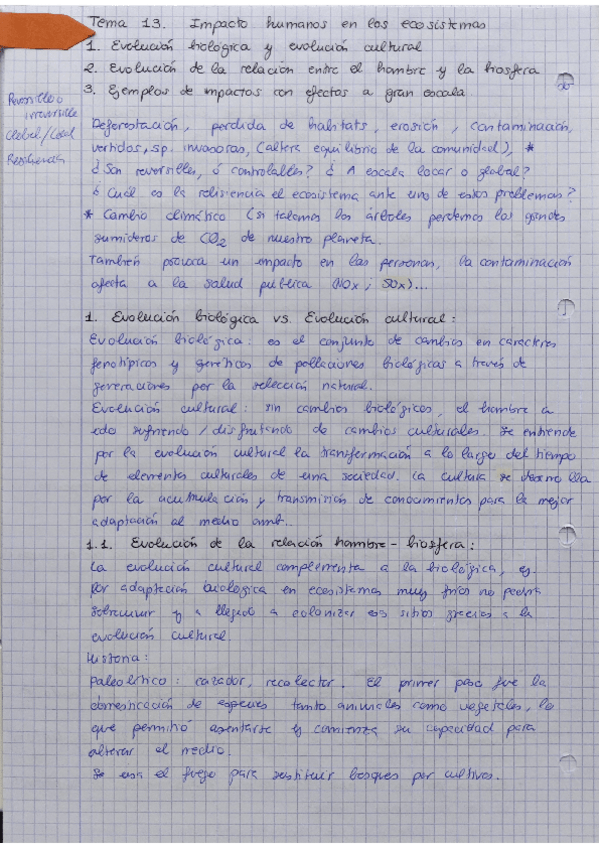 Tema 13. Impacto humanos en los ecosistemas
1. Evolución biológica y evolución cultural
2. Evolución de la relación entre el hombre y la biosfera
3. Ejemplos de impactos con efectos a gran escala.
Reversible o
irreversible
Global/Local
Resiliencia
Deforestación, perdida de habitats, erosión, contaminación,
vertidos, sp. invasoras, (altera equilibrio de la comunidad), *
¿Son reversibles, ó controlables? ¿A escala local o global?
¿Cuál es la resiliencia el ecosistema ante uno de estos problemas?
* Cambio climático (si talamos los árboles perdemos los grandes
sumideros de CO2 de nuestro planeta.
También provoca un impacto en las personas, la contaminación
afecta a la salud publica (NOx; SOx)...
1. Evolución biológica vs. Evolución cultural:
Evolución biológica: es el conjunto de cambios en caracteres
fenotípicos y genéticos de poblaciones biológicas a través de
generaciones por la selección natural.
Evolución cultural: sin cambios biológicos, el hombre a
ido sufriendo/disfrutando de cambios culturales. Se entiende
por la evolución cultural la transformación a lo largo del tiempo
de elementos culturales de una sociedad. La cultura se desarrolla
por la acumulación y transmisión de conocimientos para la mejor
adaptación al medio amb..
1.1. Evolución de la relación hombre-biosfera:
La evolución cultural complementa a la biológica, ej.
por adaptación biológica en ecosistemas muy fríos no podría
sobrevivir y a llegado a colonizar esos sitios gracias a la
evolución cultural.
Historia:
Paleolítico: cazador, recolector. El primer paso fue la
domesticación de especies tanto animales como vegetales, lo
que permitió asentarse y comienza su capacidad para
alterar el medio.
Se usa el fuego para sustituir bosques por cultivos.